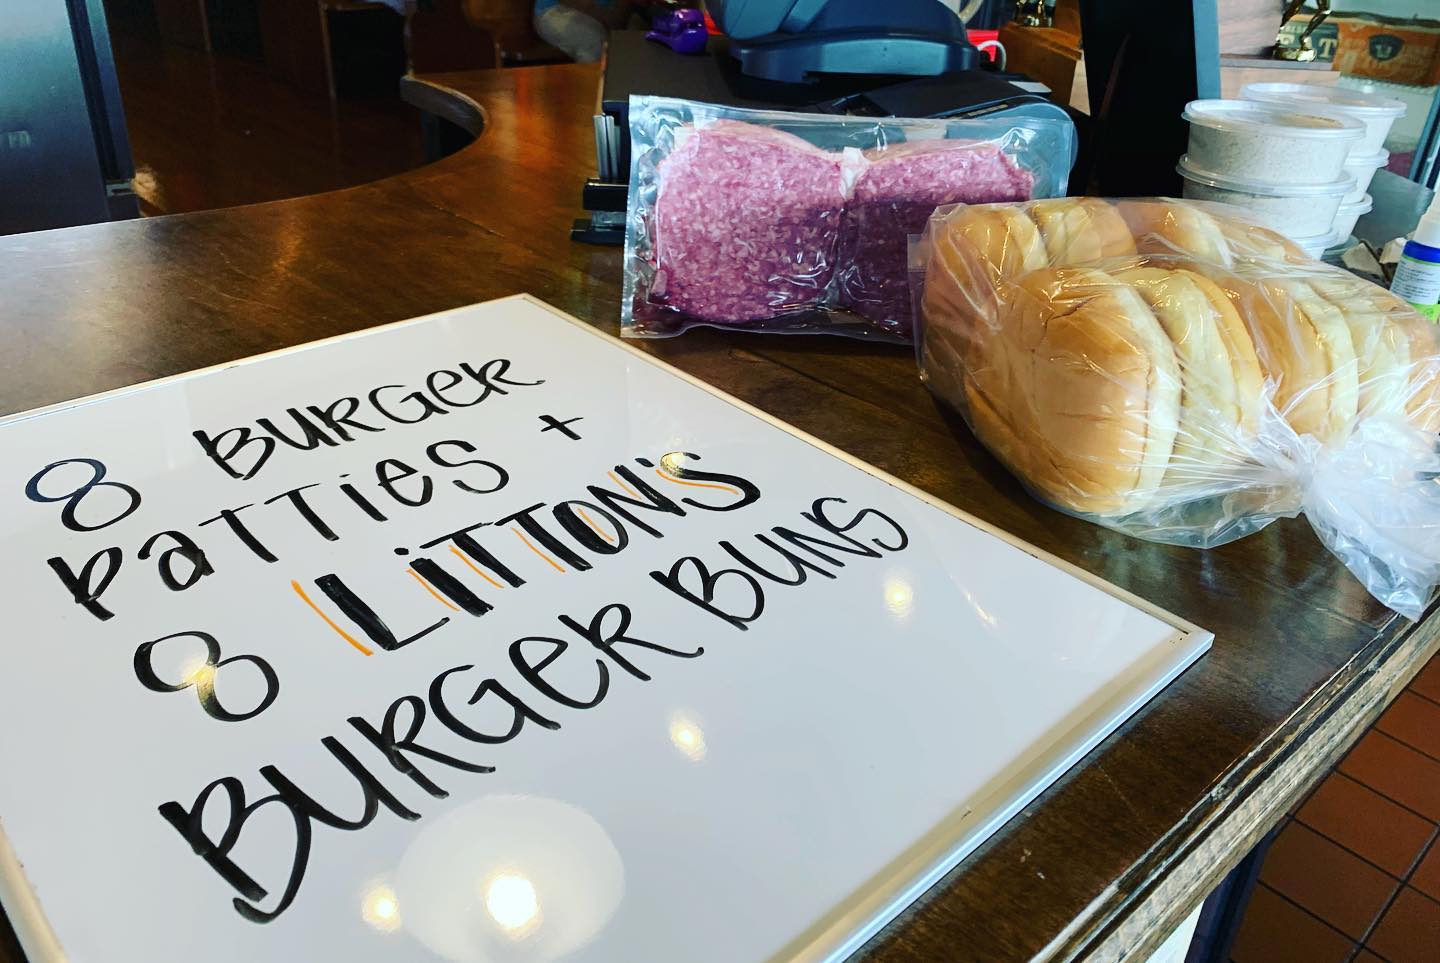 8 BURGER
PATTIES +
8 LiTTON'S
BURGER BUNS